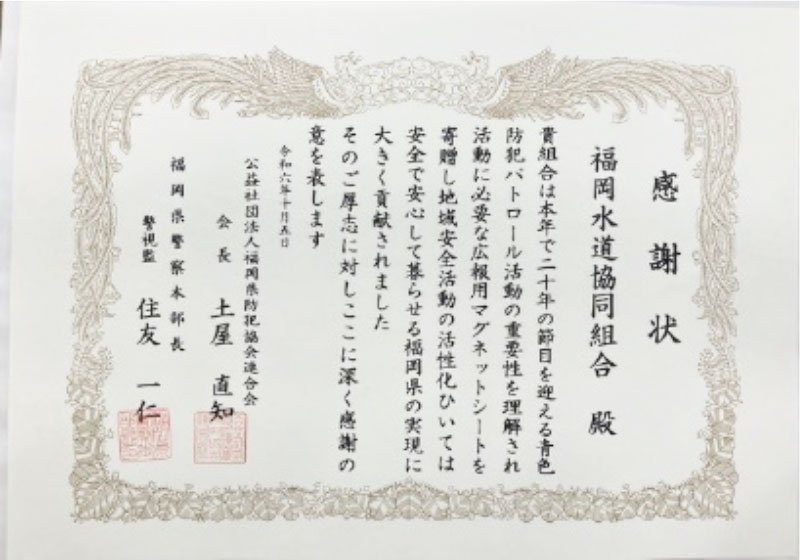 感謝状
福岡水道協同組合 殿
貴組合は本年で二十年の節目を迎える青色
防犯パトロール活動の重要性を理解され
活動に必要な広報用マグネットシートを
寄贈し地域安全活動の活性化ひいては
安全で安心して暮らせる福岡県の実現に
大きく貢献されました
そのご厚志に対しここに深く感謝の
意を表します
令和六年十月五日
公益社団法人福岡県防犯協会連合会
会長 土屋 直知
福岡県警察本部長
警視監 住友 一仁